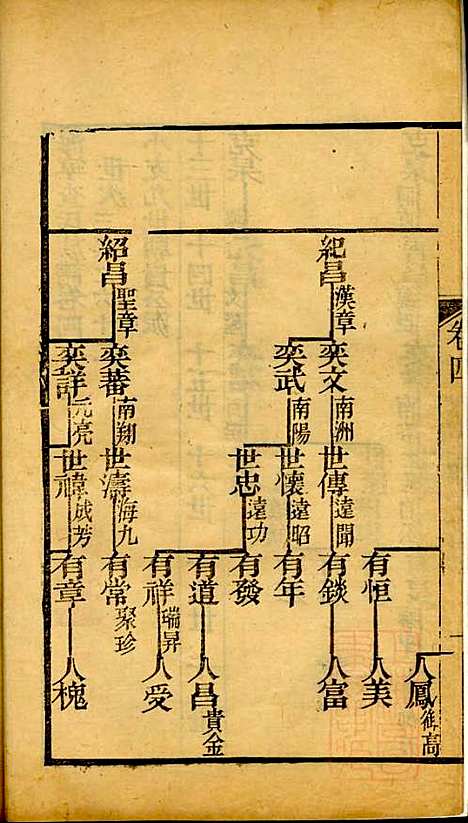 卷四
紀昌 漢章
紹昌 聖章
奕文 南洲
奕武 南陽
奕蕃 南翔
奕詳 元亮
世傳 遠聞
世懷 遠昭
世忠 遠功
世濤 海九
世禕 成芳
有恒
有錟
有年
有發
有道
有祥 瑞昇
有常 聚珍
有章
人鳳 御高
人美
人富
人昌 貴金
人受
人槐